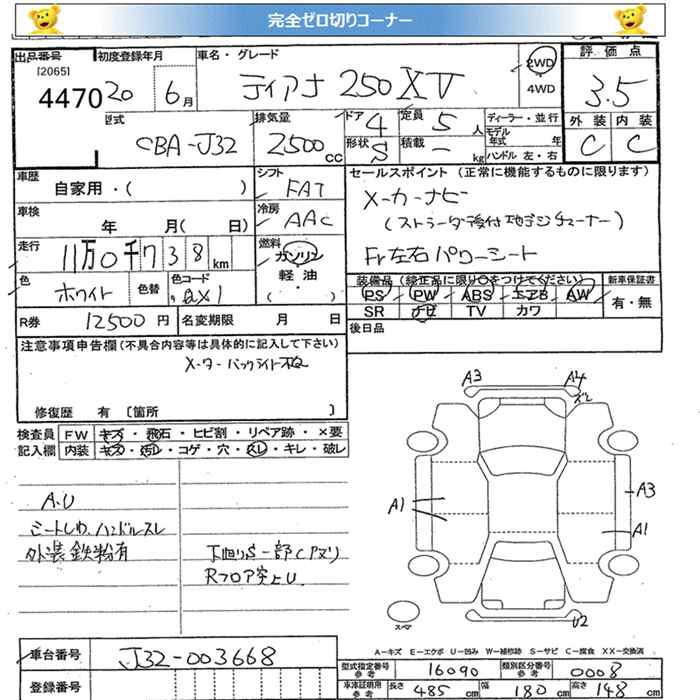 完全ゼロ切りコーナー
出品番号
[2065]
4470
初度登録年月
20 6月
車名・グレード
ティアナ 250XV
2WD
4WD
評価点
3.5
外装 内装
C C
型式
CBA-J32
排気量
2500cc
ドア 4
形状 S
定員 5人
積載 - kg
ディーラー・並行
モデル年式 年
ハンドル 左・右
車歴
自家用・( )
シフト
FAT
車検
年 月( 日)
冷房
AAC
走行
11万0千738km
燃料
ガソリン
軽油
(・ )
色
ホワイト
色替
色コード
QX1
R券 12500円
名変期限 月 日
セールスポイント (正常に機能するものに限ります)
メーカーナビ
(ストラーダ後付地デジチューナー)
Fr左右パワーシート
装備品 (純正品に限り○をつけてください)
PS PW ABS エアB AW
SR ナビ TV カワ
新車保証書
有・無
後日品
注意事項申告欄(不具合内容等は具体的に記入して下さい)
メーターバックライト不良
修復歴 有 [箇所 ]
検査員記入欄
FW キズ・飛石・ヒビ割・リペア跡・×要
内装 キズ・汚レ・コゲ・穴・スレ・キレ・破レ
A.U
シートしわ、ハンドルスレ
外装鉄粉有
下廻りS一部Cアリ
Rフロア突上U
A3 A4
ズレ
A1
A3
A1
U2
スペア
A-キズ E-エクボ U-凹み W-補修跡 S-サビ C-腐食 XX-交換済
車台番号
J32-003668
登録番号
型式指定番号 参考 16090
類別区分番号 参考 0008
車検証明用 参考 長さ 485cm 幅 180cm 高さ 148cm